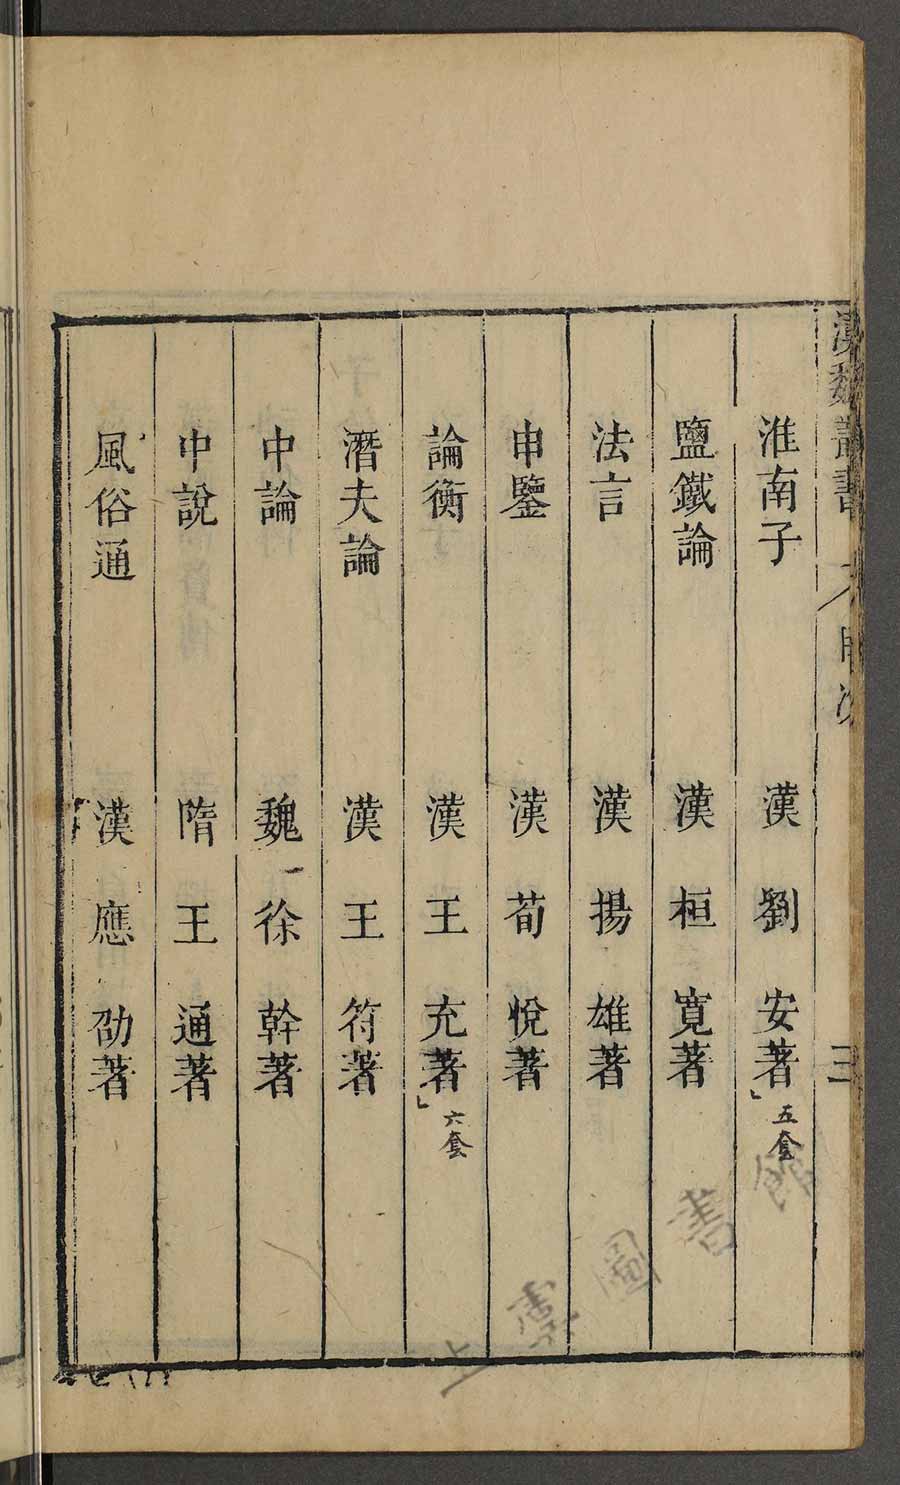 漢魏叢書 目次 三
淮南子 漢劉安著 五套
鹽鐵論 漢桓寬著
法言 漢揚雄著
申鑒 漢荀悅著
論衡 漢王充著 六套
潛夫論 漢王符著
中論 魏徐幹著
中說 隋王通著
風俗通 漢應劭著
上虞圖書館